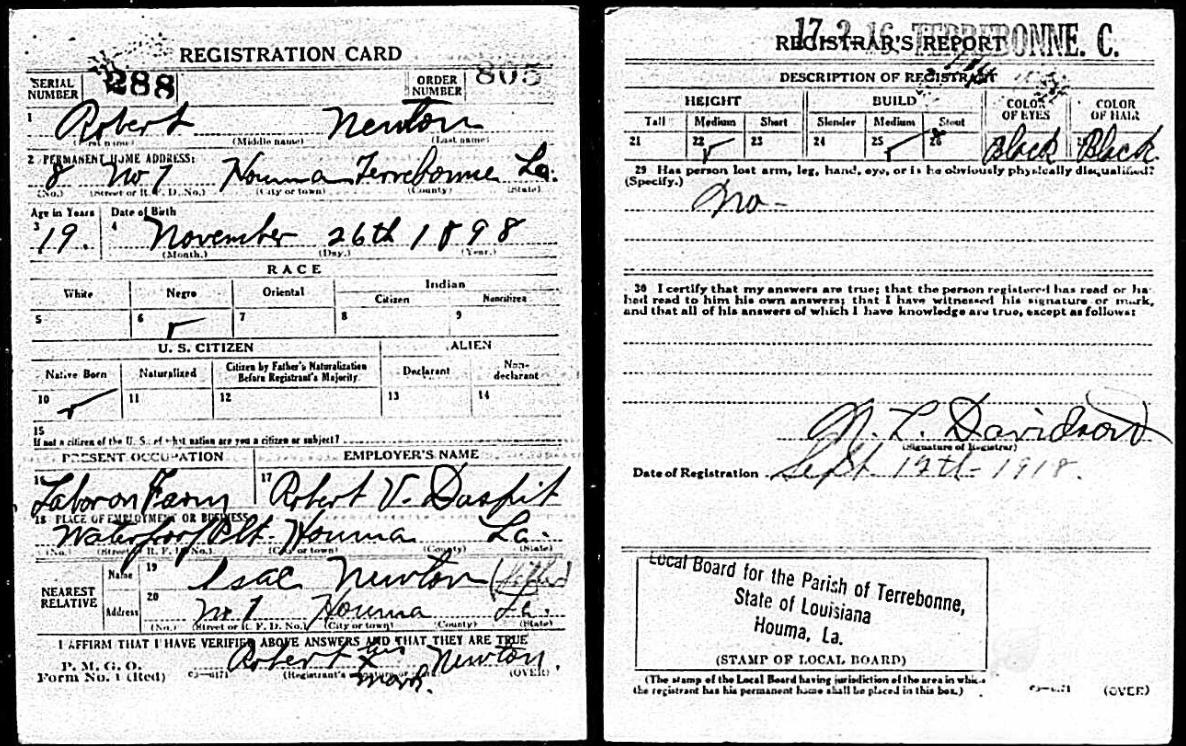 REGISTRATION CARD
SERIAL NUMBER 288 ORDER NUMBER 805
1 Robert Newton
(First name) (Middle name) (Last name)
2 PERMANENT HOME ADDRESS:
8 No 1 Houma Terrebonne La.
(No.) (Street or R. F. D. No.) (City or town) (County) (State)
Age in Years Date of Birth
3 19. 4 November 26th 1898
(Month.) (Day.) (Year.)
RACE
White Negro Oriental Indian
Citizen Noncitizen
5 6 ✓ 7 8 9
U. S. CITIZEN ALIEN
Native Born Naturalized Citizen by Father's Naturalization Before Registrant's Majority Declarant Non-declarant
10 ✓ 11 12 13 14
15
If not a citizen of the U. S., of what nation are you a citizen or subject?
PRESENT OCCUPATION EMPLOYER'S NAME
16 Labor on Farm 17 Robert V. Daspit
18 PLACE OF EMPLOYMENT OR BUSINESS:
Waterproof Plt. Houma La.
(No.) (Street or R. F. D. No.) (City or town) (County) (State)
NEAREST RELATIVE Name 19 Isac Newton
Address 20 No. 1 Houma La.
(No.) (Street or R. F. D. No.) (City or town) (County) (State)
I AFFIRM THAT I HAVE VERIFIED ABOVE ANSWERS AND THAT THEY ARE TRUE
P. M. G. O.
Form No. 1 (Red) Robert his X mark. Newton.
(Registrant's signature or mark) (OVER)
17-2-16 TERREBONNE. C.
REGISTRAR'S REPORT
DESCRIPTION OF REGISTRANT
HEIGHT BUILD COLOR OF EYES COLOR OF HAIR
Tall Medium Short Slender Medium Stout
21 22 ✓ 23 24 25 ✓ 26 Black Black.
29 Has person lost arm, leg, hand, eye, or is he obviously physically disqualified?
(Specify.) No-
30 I certify that my answers are true; that the person registered has read or has
had read to him his own answers; that I have witnessed his signature or mark,
and that all of his answers of which I have knowledge are true, except as follows:
N. L. Davidson
(Signature of Registrar)
Date of Registration Sept 12th- 1918.
Local Board for the Parish of Terrebonne,
State of Louisiana
Houma, La.
(STAMP OF LOCAL BOARD)
(The stamp of the Local Board having jurisdiction of the area in which
the registrant has his permanent home shall be placed in this box.)
(OVER)